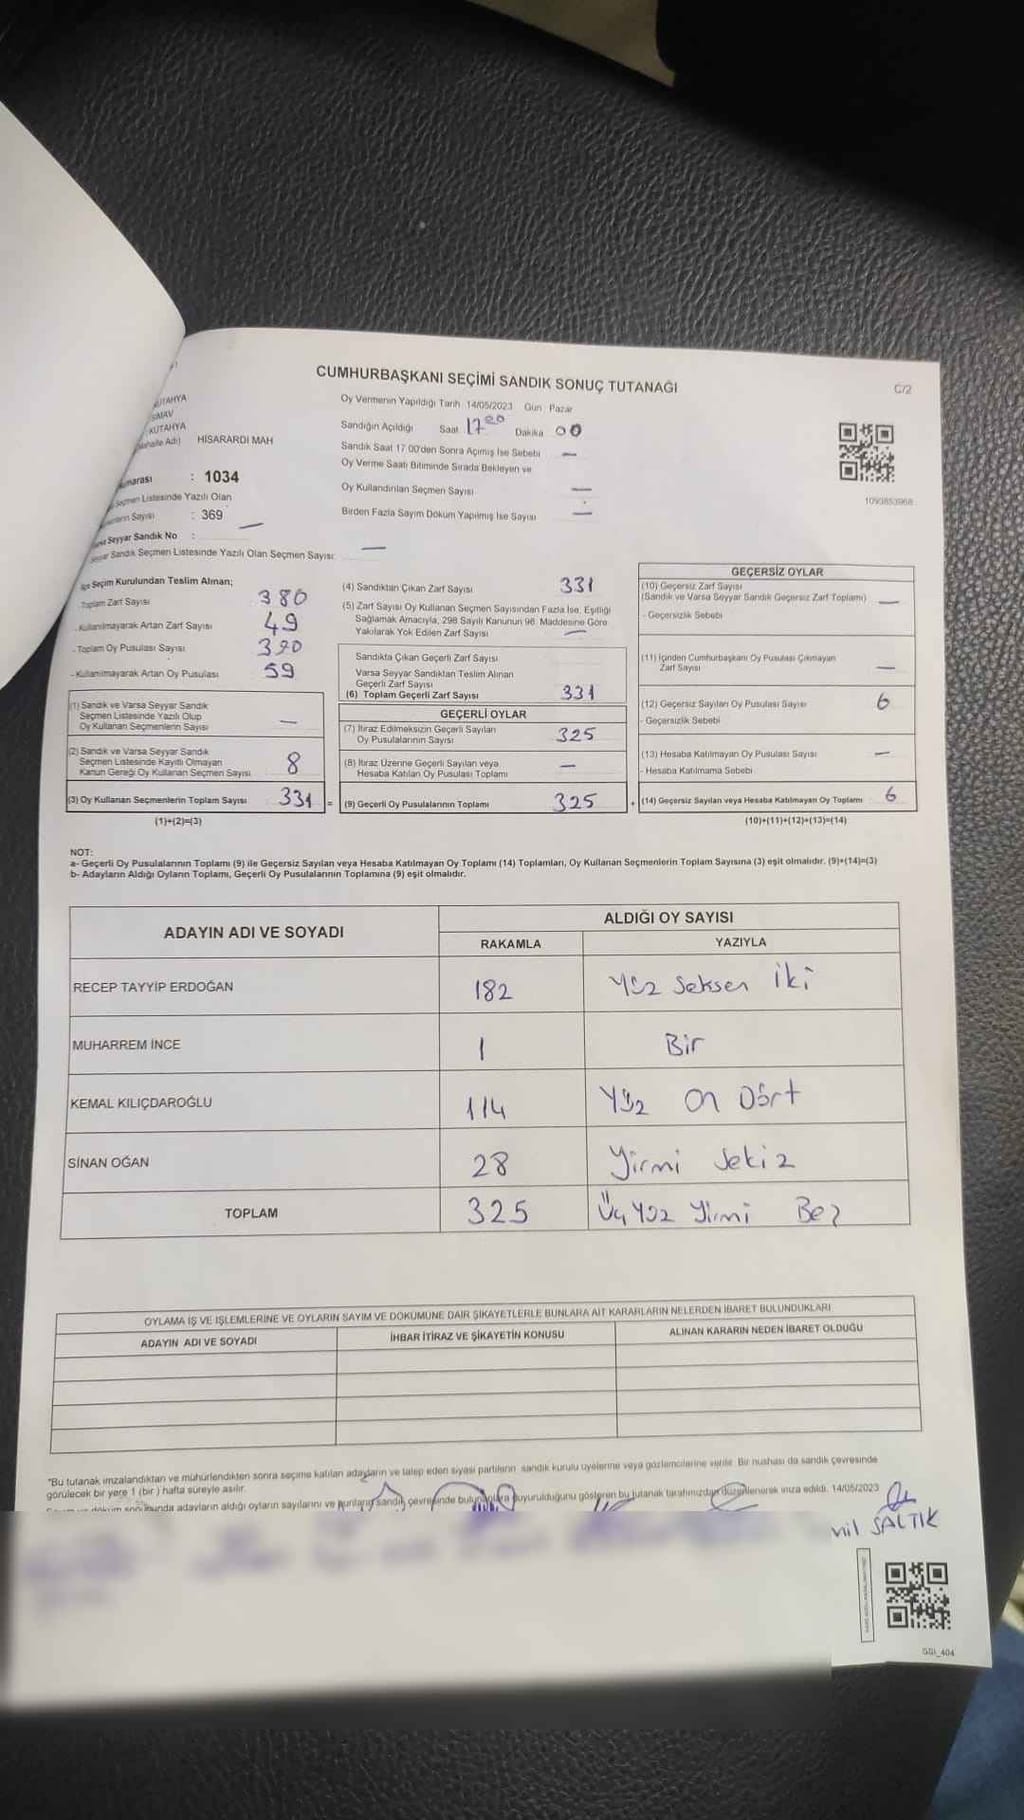 CUMHURBAŞKANI SEÇİMİ SANDIK SONUÇ TUTANAĞI
C/2
KÜTAHYA
SİMAV
KÜTAHYA
HİSARARDI MAH
: 1034
Seçmen Listesinde Yazılı Olan
: 369
Seyyar Sandık No :
Seyyar Sandık Seçmen Listesinde Yazılı Olan Seçmen Sayısı: —
Oy Vermenin Yapıldığı Tarih 14/05/2023 Gün Pazar
Sandığın Açıldığı Saat 17 00 Dakika 00
Sandık Saat 17.00'den Sonra Açılmış İse Sebebi —
Oy Verme Saati Bitiminde Sırada Bekleyen ve
Oy Kullandırılan Seçmen Sayısı —
Birden Fazla Sayım Döküm Yapılmış İse Sayısı —
1093853968
Seçim Kurulundan Teslim Alınan;
Toplam Zarf Sayısı 380
- Kullanılmayarak Artan Zarf Sayısı 49
- Toplam Oy Pusulası Sayısı 390
- Kullanılmayarak Artan Oy Pusulası 59
(1) Sandık ve Varsa Seyyar Sandık
Seçmen Listesinde Yazılı Olup
Oy Kullanan Seçmenlerin Sayısı —
(2) Sandık ve Varsa Seyyar Sandık
Seçmen Listesinde Kayıtlı Olmayan
Kanun Gereği Oy Kullanan Seçmen Sayısı 8
(3) Oy Kullanan Seçmenlerin Toplam Sayısı 331 =
(1)+(2)=(3)
(4) Sandıktan Çıkan Zarf Sayısı 331
(5) Zarf Sayısı Oy Kullanan Seçmen Sayısından Fazla İse, Eşitliği
Sağlamak Amacıyla, 298 Sayılı Kanunun 98. Maddesine Göre
Yakılarak Yok Edilen Zarf Sayısı —
Sandıkta Çıkan Geçerli Zarf Sayısı
Varsa Seyyar Sandıktan Teslim Alınan
Geçerli Zarf Sayısı
(6) Toplam Geçerli Zarf Sayısı 331
GEÇERLİ OYLAR
(7) İtiraz Edilmeksizin Geçerli Sayılan
Oy Pusulalarının Sayısı 325
(8) İtiraz Üzerine Geçerli Sayılan veya
Hesaba Katılan Oy Pusulası Toplamı —
(9) Geçerli Oy Pusulalarının Toplamı 325 +
GEÇERSİZ OYLAR
(10) Geçersiz Zarf Sayısı
(Sandık ve Varsa Seyyar Sandık Geçersiz Zarf Toplamı) —
- Geçersizlik Sebebi
(11) İçinden Cumhurbaşkanı Oy Pusulası Çıkmayan
Zarf Sayısı —
(12) Geçersiz Sayılan Oy Pusulası Sayısı 6
- Geçersizlik Sebebi
(13) Hesaba Katılmayan Oy Pusulası Sayısı —
- Hesaba Katılmama Sebebi
(14) Geçersiz Sayılan veya Hesaba Katılmayan Oy Toplamı 6
(10)+(11)+(12)+(13)=(14)
NOT:
a- Geçerli Oy Pusulalarının Toplamı (9) ile Geçersiz Sayılan veya Hesaba Katılmayan Oy Toplamı (14) Toplamları, Oy Kullanan Seçmenlerin Toplam Sayısına (3) eşit olmalıdır. (9)+(14)=(3)
b- Adayların Aldığı Oyların Toplamı, Geçerli Oy Pusulalarının Toplamına (9) eşit olmalıdır.
ADAYIN ADI VE SOYADI ALDIĞI OY SAYISI
RAKAMLA YAZIYLA
RECEP TAYYİP ERDOĞAN 182 Yüz Seksen İki
MUHARREM İNCE 1 Bir
KEMAL KILIÇDAROĞLU 114 Yüz On Dört
SİNAN OĞAN 28 Yirmi Sekiz
TOPLAM 325 Üç Yüz Yirmi Beş
OYLAMA İŞ VE İŞLEMLERİNE VE OYLARIN SAYIM VE DÖKÜMÜNE DAİR ŞİKAYETLERLE BUNLARA AİT KARARLARIN NELERDEN İBARET BULUNDUKLARI
ADAYIN ADI VE SOYADI İHBAR İTİRAZ VE ŞİKAYETİN KONUSU ALINAN KARARIN NEDEN İBARET OLDUĞU
*Bu tutanak imzalandıktan ve mühürlendikten sonra seçime katılan adayların ve talep eden siyasi partilerin sandık kurulu üyelerine veya gözlemcilerine verilir. Bir nüshası da sandık çevresinde
görülecek bir yere 1 (bir) hafta süreyle asılır.
sonunda adayların aldığı oyların sayılarını ve bunların sandık çevresinde bulunanlara duyurulduğunu gösteren bu tutanak tarafımızdan düzenlenerek imza edildi. 14/05/2023
SALTIK
GSI_404